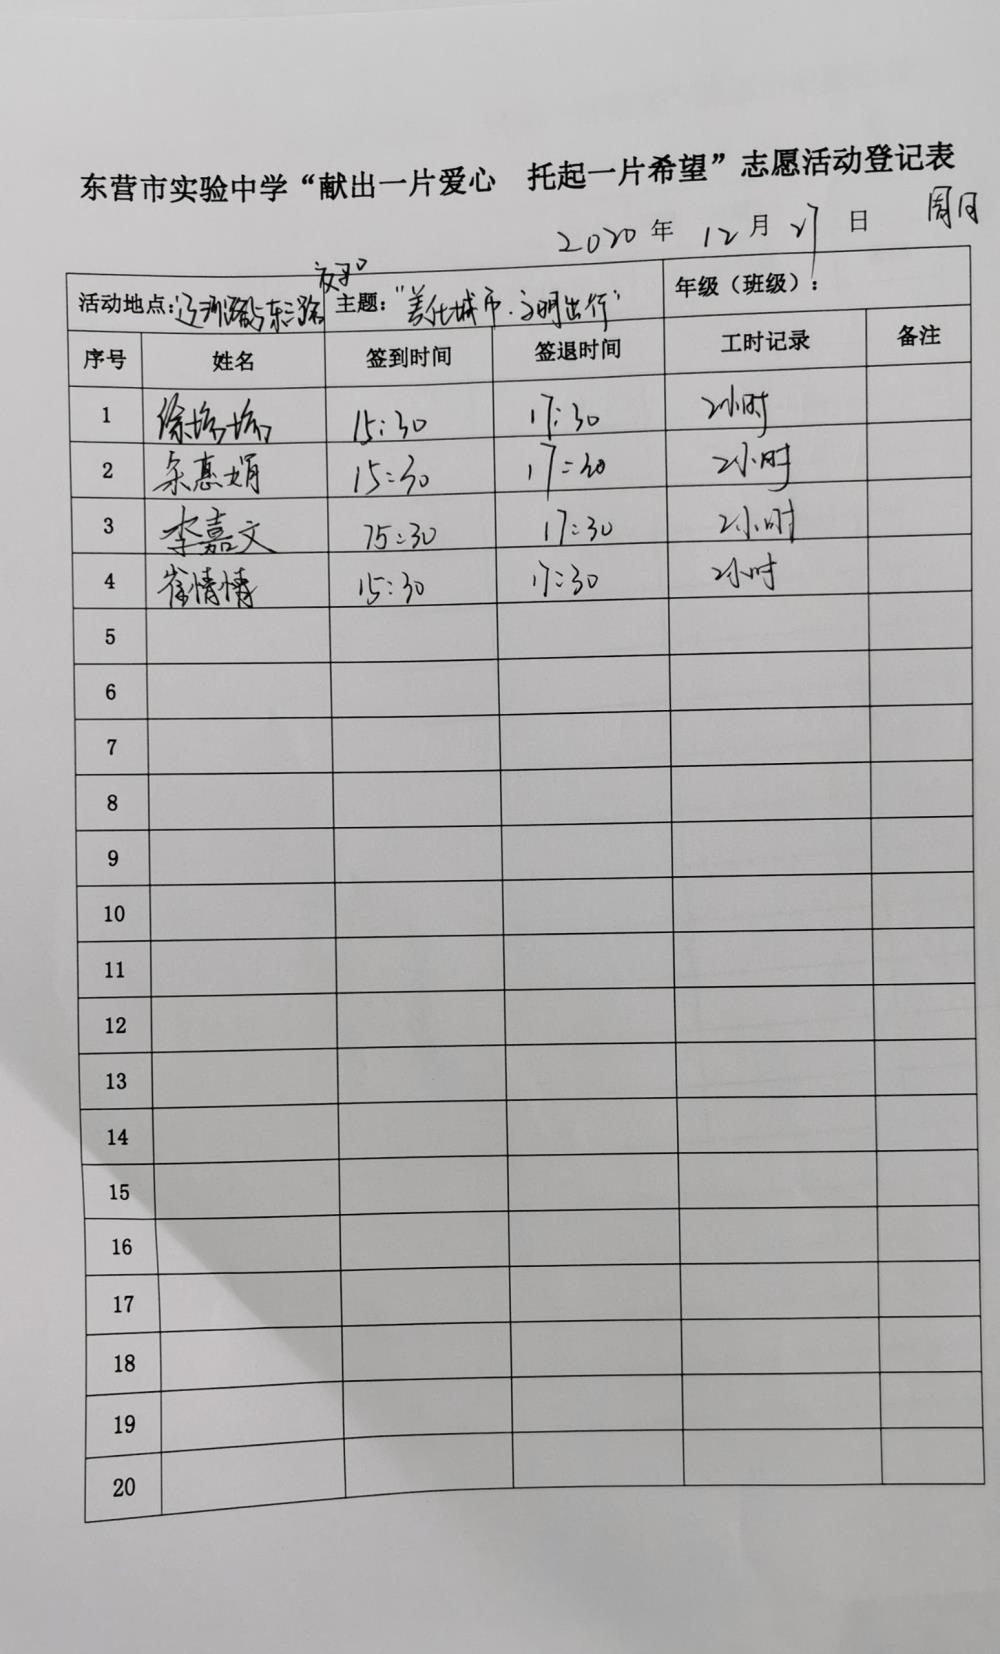 东营市实验中学“献出一片爱心 托起一片希望”志愿活动登记表
2020 年 12 月 27 日 周日
活动地点：辽河路与东三路 主题：“美化城市·文明出行” 年级（班级）：
序号 姓名 签到时间 签退时间 工时记录 备注
1 徐 15:30 17:30 2小时
2 惠娟 15:30 17:30 2小时
3 李嘉文 15:30 17:30 2小时
4 崔情情 15:30 17:30 2小时
5
6
7
8
9
10
11
12
13
14
15
16
17
18
19
20